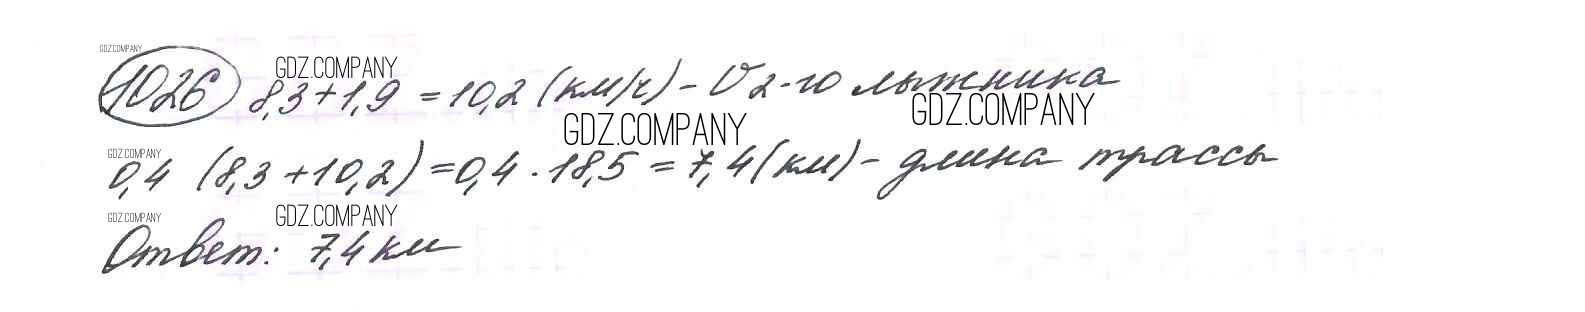 GDZ.COMPANY
1026 8,3+1,9 = 10,2 (км/ч) - V 2-го лыжника
GDZ.COMPANY
GDZ.COMPANY
GDZ.COMPANY
0,4 (8,3+10,2) = 0,4 · 18,5 = 7,4 (км) - длина трассы
GDZ.COMPANY
GDZ.COMPANY
GDZ.COMPANY
Ответ: 7,4 км